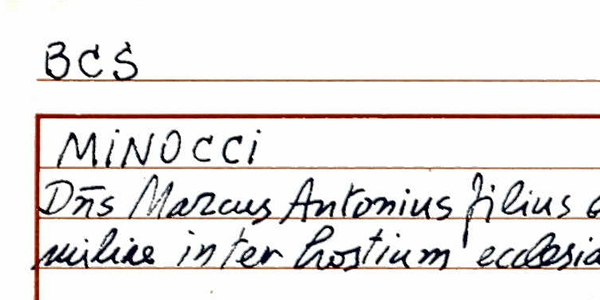 BCS
MINOCCI
Dn̄s Marcus Antonius filius
miliae inter hostium